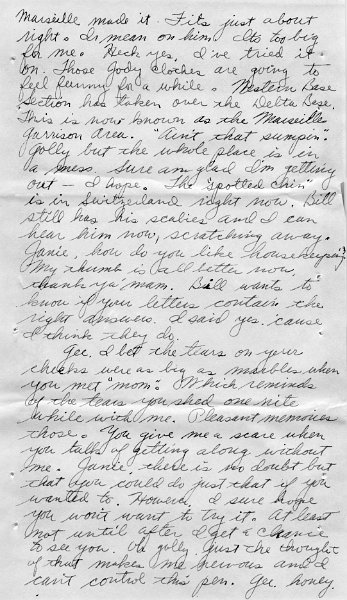 Marseille made it. Fits just about
right. I mean on him. Its too big
for me. Heck yes, I've tried it
on. Those Gody Clothes are going to
feel funny for a while. Western Base
Section has taken over the Delta Base.
This is now known as the Marseille
Garrison Area. "Ain't that sumpin".
Golly but the whole place is in
a mess. Sure am glad I'm getting
out - I hope. The "spotted Chin"
is in Switzerland right now. Bill
still has his scabies and I can
hear him now, scratching away.
Janie, how do you like housekeeping?
My thumb is all better now,
thank ya mam. Bill wants to
know if your letters contain the
right answers. I said yes 'cause
I think they do.
Gee, I bet the tears on your
cheeks were as big as marbles when
you met "mom". Which reminds
of the tears you shed one nite
while with me. Pleasant memories
those. You give me a scare when
you talk of getting along without
me. Janie, there is no doubt but
that you could do just that if you
wanted to. However, I sure hope
you won't want to try it. At least
not until after I get a chance
to see you. Oh golly, just the thought
of that makes me nervous and I
can't control this pen. Gee, honey